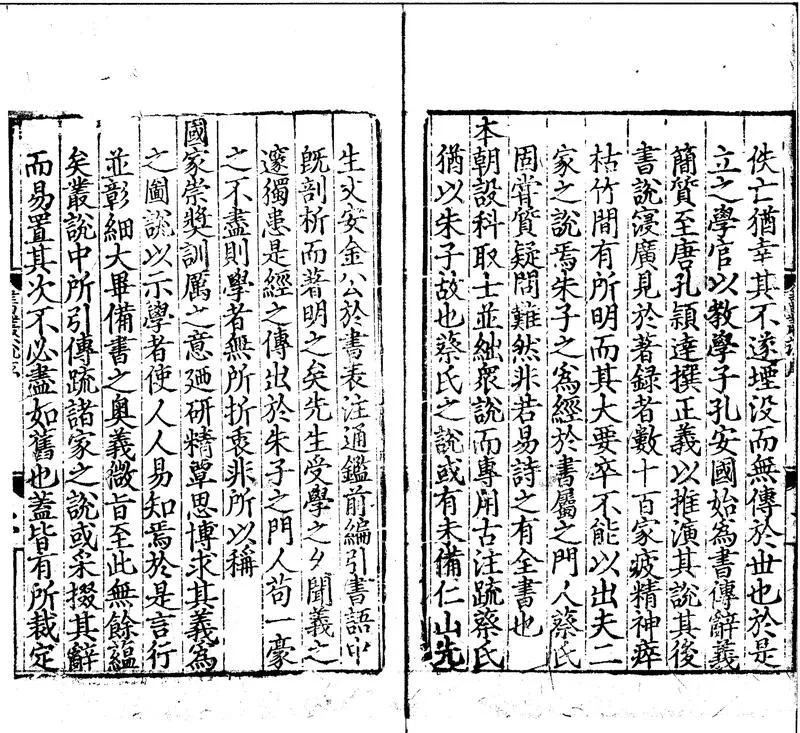 佚亡猶幸其不遂堙没而無傳於丗也於是
立之學官以教學子孔安國始為書傳辭義
簡質至唐孔頴達撰正義以推演其說其後
書說寖廣見於著録者數十百家疲精神瘁
枯竹間有所明而其大要卒不能以出夫二
家之說焉朱子之為經於書屬之門人蔡氏
固甞質疑問難然非若易詩之有全書也
本朝設科取士並絀衆說而專用古注䟽蔡氏
猶以朱子故也蔡氏之說或有未備仁山先
生文安金公於書表注通鑑前編引書語中
既剖析而著明之矣先生受學之夕聞義之
邃獨患是經之傳出於朱子之門人苟一豪
之不盡則學者無所折衷非所以稱
國家崇奬訓厲之意廼研精覃思博求其義為
之圖說以示學者使人人易知焉於是言行
並彰細大畢備書之奥義微旨至此無餘藴
矣叢說中所引傳䟽諸家之說或采掇其辭
而易置其次不必盡如舊也蓋皆有所裁定